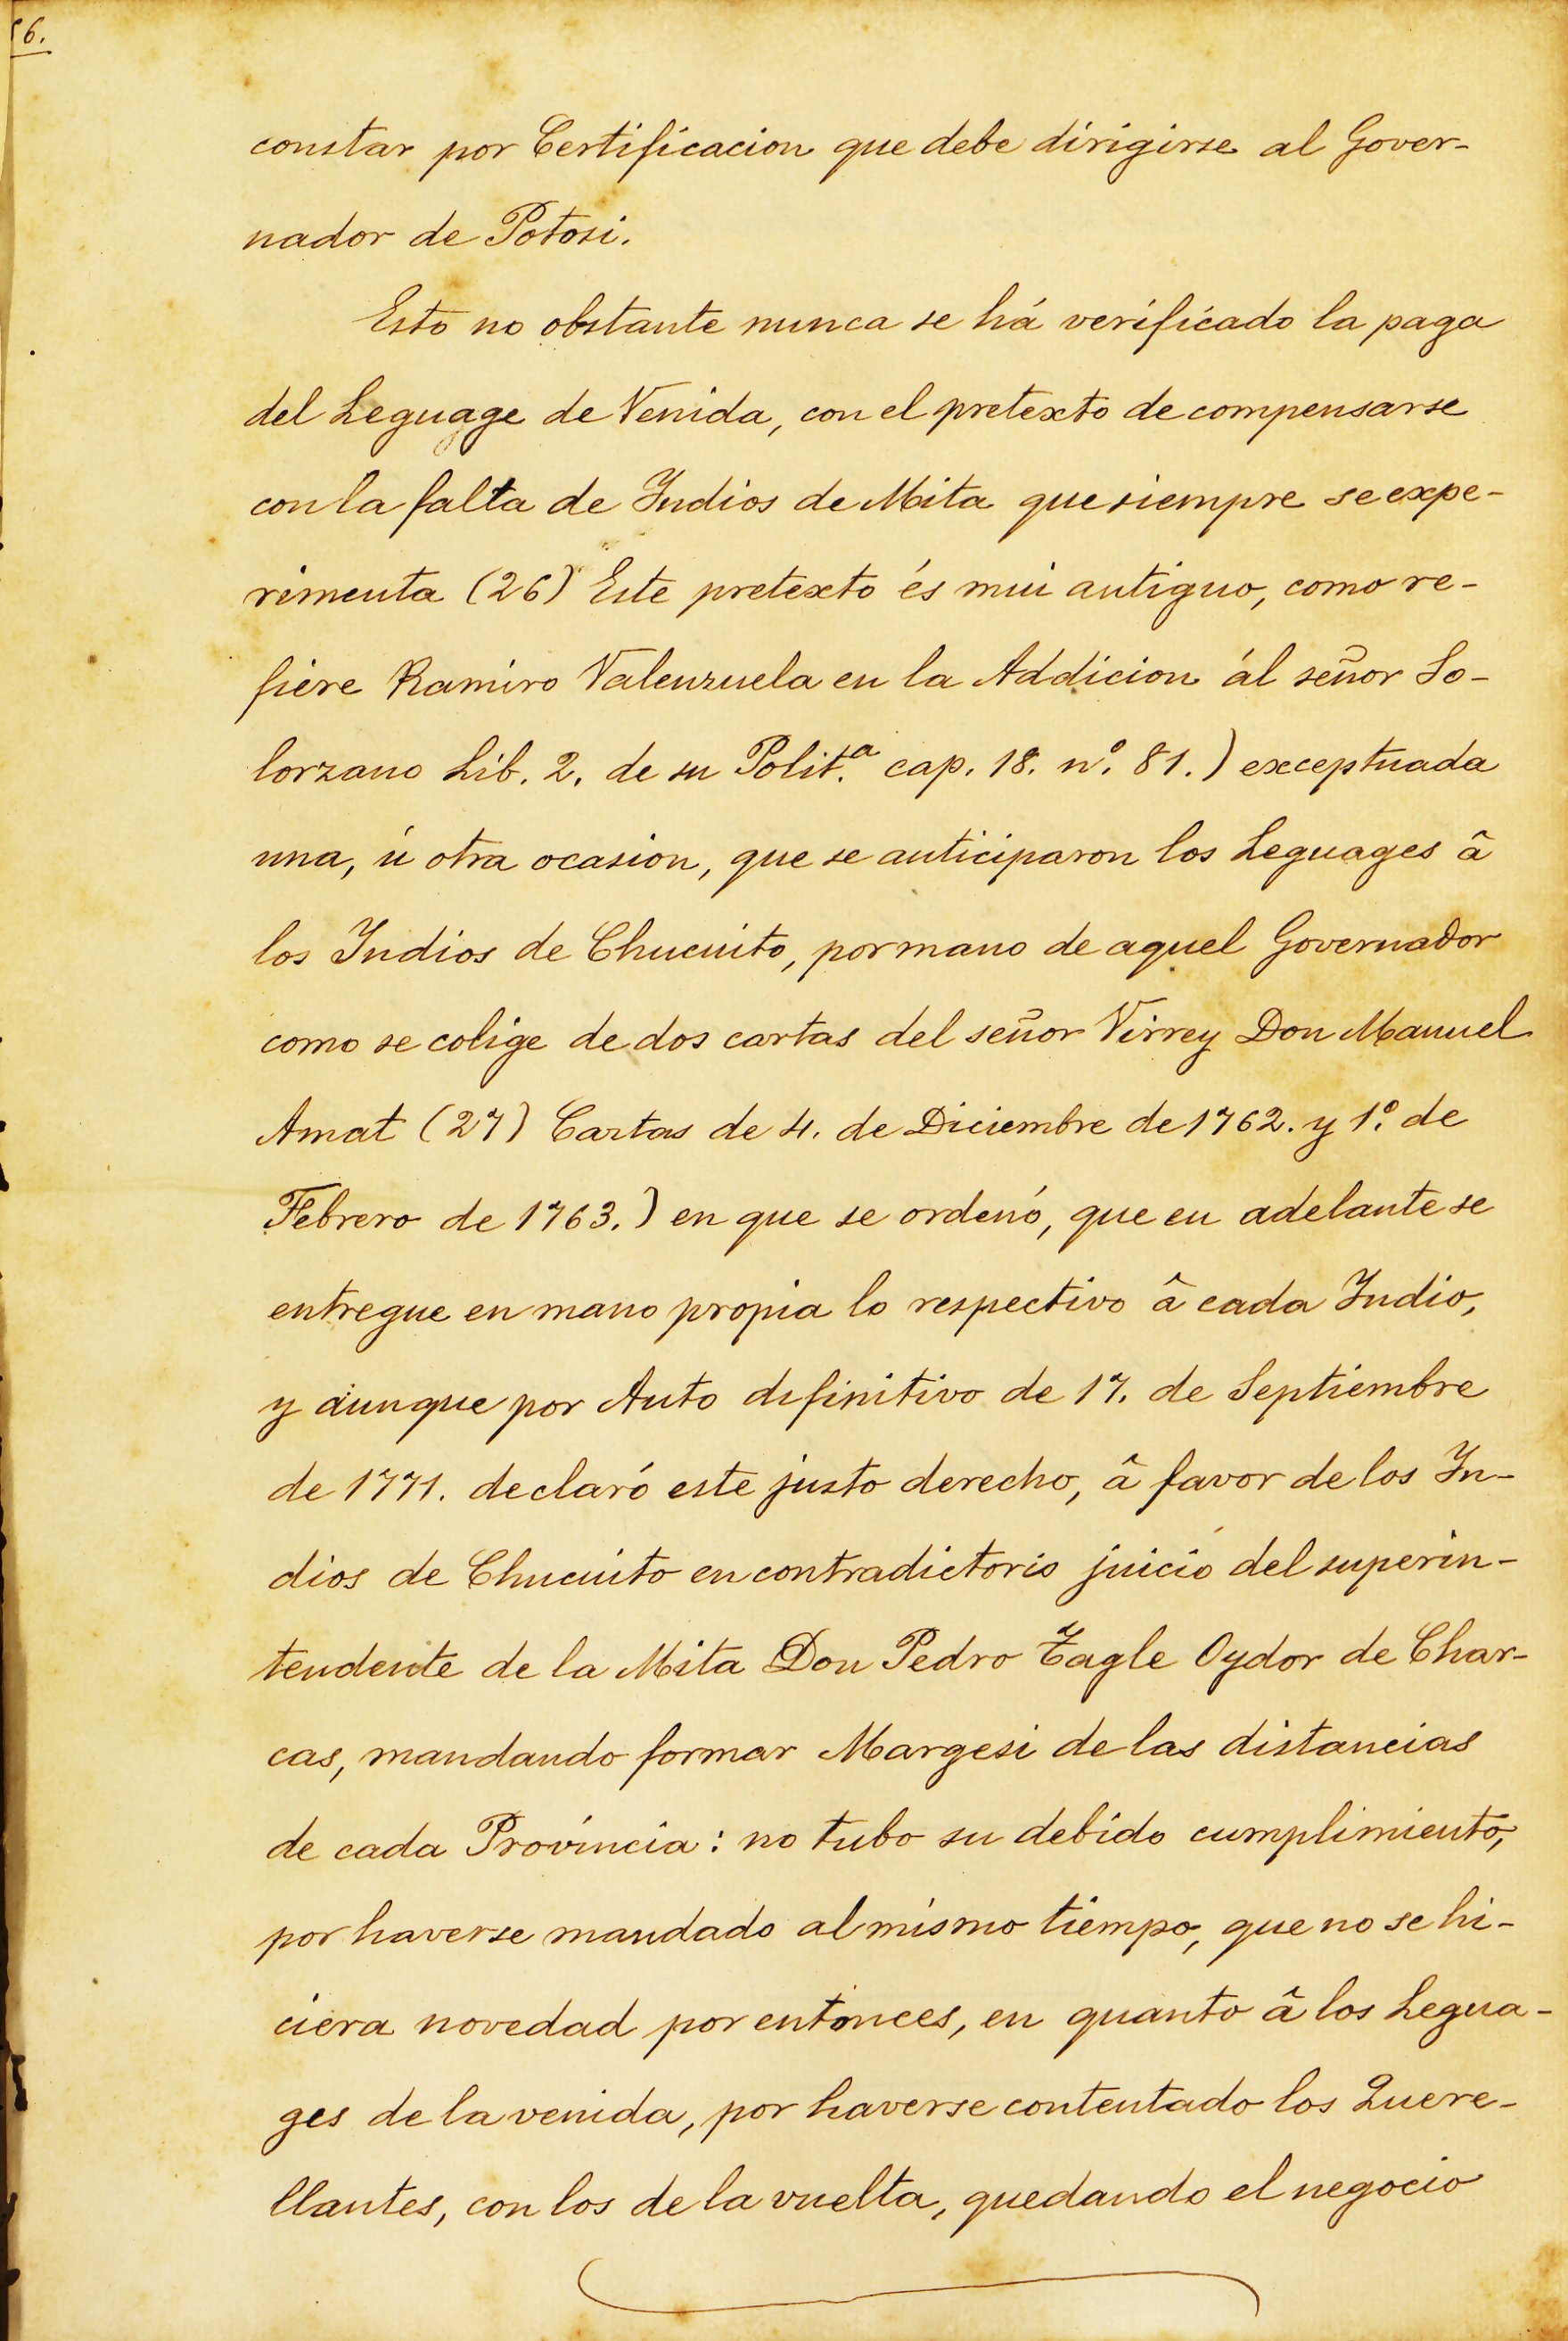 6.
constar por Certificacion que debe dirigirse al Gover-
nador de Potosi.
Esto no obstante nunca se há verificado la paga
del Leguage de Venida, con el pretexto de compensarse
con la falta de Indios de Mita que siempre se expe-
rimenta (26) Este pretexto és mui antiguo, como re-
fiere Ramiro Valenzuela en la Addicion ál señor So-
lorzano Lib. 2. de su Polit.ª cap. 18. nº. 81.) exceptuada
una, ú otra ocasion, que se anticiparon los Leguages â
los Indios de Chucuito, por mano de aquel Governador
como se colige de dos cartas del señor Virrey Don Manuel
Amat (27) Cartas de 4. de Diciembre de 1762. y 1º. de
Febrero de 1763.) en que se ordenó, que en adelante se
entregue en mano propia lo respectivo â cada Indio,
y aunque por Auto difinitivo de 17. de Septiembre
de 1771. declaró este justo derecho, â favor de los In-
dios de Chucuito en contradictorio juicio del superin-
tendente de la Mita Don Pedro Tagle Oydor de Char-
cas, mandando formar Margesi de las distancias
de cada Provincia: no tubo su debido cumplimiento,
por haverse mandado al mismo tiempo, que no se hi-
ciera novedad por entonces, en quanto â los Legua-
ges de la venida, por haverse contentado los Quere-
llantes, con los de la vuelta, quedando el negocio